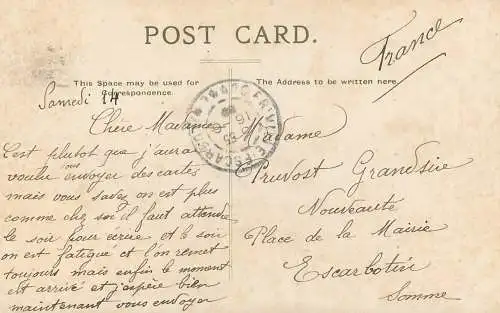 POST CARD.
France
This Space may be used for
Correspondence.
The Address to be written here.
Samedi 14
Chère Madame
C'est plutot que j'aurai
voulu envoyer des cartes
mais vous savez on est plus
comme chez soi il faut attendre
le soir pour écrire et le soir
on est fatigué et l'on remet
toujours mais enfin le moment
est arrivé et j'espère bien
maintenant vous envoyer
Madame
Pruvost Grandsire
Nouveauté
Place de la Mairie
Escarbotin
Somme